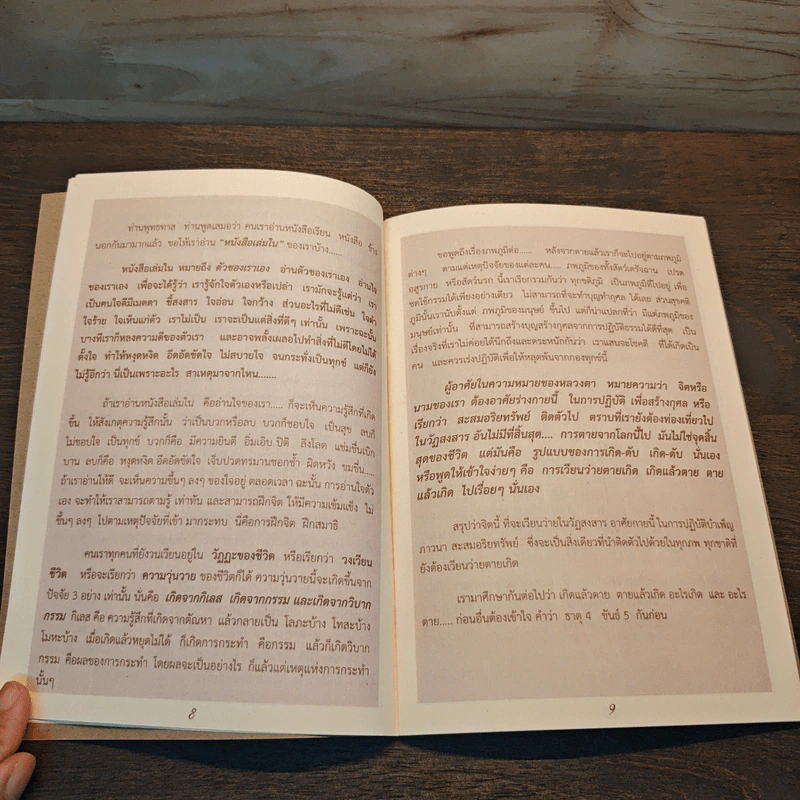 ท่านพุทธทาส ท่านพูดเสมอว่า คนเราอ่านหนังสือเรียน หนังสือ ข้าง
นอกกันมามากแล้ว ขอให้เราอ่าน "หนังสือเล่มใน" ของเราบ้าง.....
หนังสือเล่มใน หมายถึง ตัวของเราเอง อ่านตัวของเราเอง อ่านใจ
ของเราเอง เพื่อจะได้รู้ว่า เรารู้จักใจตัวเองหรือเปล่า เรามักจะรู้แต่ว่า เรา
เป็นคนใจดีมีเมตตา ขี้สงสาร ใจอ่อน ใจกว้าง ส่วนอะไรที่ไม่ดีเช่น ใจดำ
ใจร้าย ใจเห็นแก่ตัว เราไม่เป็น เราจะเป็นแต่สิ่งที่ดีๆ เท่านั้น เพราะฉะนั้น
บางทีเราก็หลงความดีของตัวเรา และอาจพลั้งเผลอไปทำสิ่งที่ไม่ดีโดยไม่ได้
ตั้งใจ ทำให้หงุดหงิด อึดอัดขัดใจ ไม่สบายใจ จนกระทั่งเป็นทุกข์ แต่ก็ยัง
ไม่รู้อีกว่า นี่เป็นเพราะอะไร สาเหตุมาจากไหน.......
ถ้าเราอ่านหนังสือเล่มใน คืออ่านใจของเรา..... ก็จะเห็นความรู้สึกที่เกิด
ขึ้น ให้สังเกตุความรู้สึกนั้น ว่าเป็นบวกหรือลบ บวกก็ชอบใจ เป็นสุข ลบก็
ไม่ชอบใจ เป็นทุกข์ บวกก็คือ มีความยินดี อิ่มเอิบ ปิติ ลิงโลด แช่มชื่นเบิก
บาน ลบก็คือ หงุดหงิด อึดอัดขัดใจ เจ็บปวดทรมานชอกช้ำ ผิดหวัง ขมขื่น.....
ถ้าเราอ่านให้ดี จะเห็นความขึ้นๆ ลงๆ ของใจอยู่ ตลอดเวลา ฉะนั้น การอ่านตัว
เอง จะทำให้เราสามารถตามรู้ เท่าทัน และสามารถฝึกจิต ให้มีความเข้มแข็ง ไม่
ขึ้นๆ ลงๆ ไปตามเหตุปัจจัยที่เข้า มากระทบ นี่คือการฝึกจิต ฝึกสมาธิ
คนเราทุกคนที่ยังวนเวียนอยู่ใน วัฏฏะของชีวิต หรือเรียกว่า วงเวียน
ชีวิต หรือจะเรียกว่า ความวุ่นวาย ของชีวิตก็ได้ ความวุ่นวายนี้จะเกิดขึ้นจาก
ปัจจัย 3 อย่าง เท่านั้น นั่นคือ เกิดจากกิเลส เกิดจากกรรม และเกิดจากวิบาก
กรรม กิเลส คือ ความรู้สึกที่เกิดจากตัณหา แล้วกลายเป็น โลภะบ้าง โทสะบ้าง
โมหะบ้าง เมื่อเกิดแล้วหยุดไม่ได้ ก็เกิดการกระทำ คือกรรม แล้วก็เกิดวิบาก
กรรม คือผลของการกระทำ โดยผลจะเป็นอย่างไร ก็แล้วแต่เหตุแห่งการกระทำ
นั้นๆ
8
ขอพูดถึงเรื่องภพภูมิต่อ...... หลังจากตายแล้วเราก็จะไปอยู่ตามภพภูมิ
ต่างๆ ตามแต่เหตุปัจจัยของแต่ละคน..... ภพภูมิของทั้งสัตว์เดรัจฉาน เปรต
อสูรกาย หรือสัตว์นรก นี้เราเรียกรวมกันว่า ทุกขติภูมิ เป็นภพภูมิที่ไปอยู่ เพื่อ
ชดใช้กรรมได้เพียงอย่างเดียว ไม่สามารถที่จะทำบุญทำกุศล ได้เลย ส่วนสุขคติ
ภูมินั้นเรานับตั้งแต่ ภพภูมิของมนุษย์ ขึ้นไป แต่ก็น่าแปลกที่ว่า มีแต่ภพภูมิของ
มนุษย์เท่านั้น ที่สามารถสร้างบุญสร้างกุศลจากการปฏิบัติธรรมได้ดีที่สุด เป็น
เรื่องจริงที่เราไม่ค่อยได้นึกถึงและตระหนักกันว่า เราแสนจะโชคดี ที่ได้เกิดเป็น
คน และควรเร่งปฏิบัติเพื่อให้หลุดพ้นจากกองทุกข์นี้
ผู้อาศัยในความหมายของหลวงตา หมายความว่า จิตหรือ
นามของเรา ต้องอาศัยร่างกายนี้ ในการปฏิบัติ เพื่อสร้างกุศล หรือ
เรียกว่า สะสมอริยทรัพย์ ติดตัวไป ตราบที่เรายังต้องท่องเที่ยวไป
ในวัฏสงสาร อันไม่มีที่สิ้นสุด.... การตายจากโลกนี้ไป มันไม่ใช่จุดสิ้น
สุดของชีวิต แต่มันคือ รูปแบบของการเกิด-ดับ เกิด-ดับ นั่นเอง
หรือพูดให้เข้าใจง่ายๆ คือ การเวียนว่ายตายเกิด เกิดแล้วตาย ตาย
แล้วเกิด ไปเรื่อยๆ นั่นเอง
สรุปว่าจิตนี้ ที่จะเวียนว่ายในวัฏสงสาร อาศัยกายนี้ ในการปฏิบัติบำเพ็ญ
ภาวนา สะสมอริยทรัพย์ ซึ่งจะเป็นสิ่งเดียวที่นำติดตัวไปด้วยในทุกภพ ทุกชาติที่
ยังต้องเวียนว่ายตายเกิด
เรามาศึกษากันต่อไปว่า เกิดแล้วตาย ตายแล้วเกิด อะไรเกิด และ อะไร
ตาย..... ก่อนอื่นต้องเข้าใจ คำว่า ธาตุ 4 ขันธ์ 5 กันก่อน
9